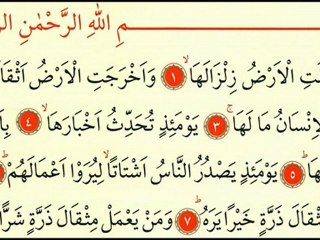 مِ اللهِ الرَّحْمٰنِ
تِ الْاَرْضُ زِلْزَالَهَاۙ ﴿١﴾ وَاَخْرَجَتِ الْاَرْضُ
اِنْسَانُ مَا لَهَاۚ ﴿٣﴾ يَوْمَئِذٍ تُحَدِّثُ اَخْبَارَهَاۙ ﴿٤﴾
هَاۜ ﴿٥﴾ يَوْمَئِذٍ يَصْدُرُ النَّاسُ اَشْتَاتًاۙ لِيُرَوْا اَعْمَالَهُمْۜ
ثْقَالَ ذَرَّةٍ خَيْرًا يَرَهُۜ ﴿٧﴾ وَمَنْ يَعْمَلْ مِثْقَالَ ذَرَّةٍ شَرًّا